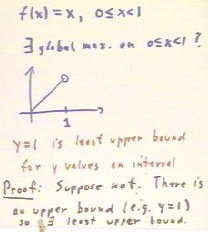 f(x) = x, 0≤x<1
∃ global max. on 0≤x<1 ?
1
y=1 is least upper bound
for y values on interval
Proof: Suppose not. There is
an upper bound (e.g. y=1)
so ∃ least upper bound.